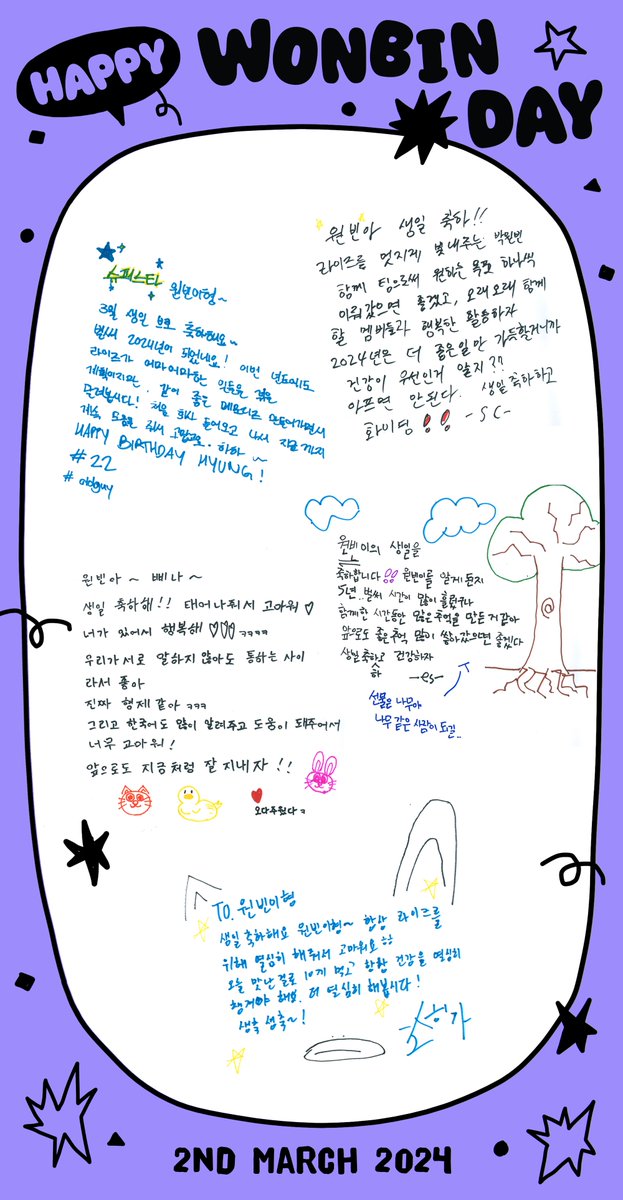 HAPPY WONBIN DAY
슈퍼스타 원빈이형~
3월 생일 축하해요~
벌써 2024년이 되었네요! 이번 년도에도
라이즈가 어마어마한 일들을
같이 좋은 메모리즈 만들어가면서
계속 도움 줘서 고맙고요 하하 ~
HAPPY BIRTHDAY HYUNG!
#22
# oldguy
원빈아 생일 축하!!
라이즈를 멋지게 빛내주는 박원빈
함께 팀으로써 원하는 목표 하나씩
이뤄갔으면 좋겠고, 오래오래 함께
할 멤버들과 행복한 활동하자
2024년은 더 좋은일만 가득할거니까
건강이 우선인거 알지??
아프면 안된다. 생일축하하고
화이팅!! -SC-
원빈이의 생일을
축하합니다!! 원빈이를 알게 된지
5년.. 벌써 시간이 많이 흘렀구나
함께한 시간동안 많은추억을 만든 거 같아
앞으로도 좋은추억 많이 쌓아갔으면 좋겠다
생일 축하하고 건강하자
-es-
선물은 나무야
나무 같은 사람이 되길..
원빈아 ~ 삐나 ~
생일 축하해!! 태어나줘서 고마워 ♡
너가 있어서 행복해 ♡♡♡ ㅋㅋㅋㅋ
우리가 서로 말하지 않아도 통하는 사이
라서 좋아
진짜 형제 같아 ㅋㅋㅋ
그리고 한국어도 많이 알려주고 도움이 돼주어서
너무 고마워!
앞으로도 지금처럼 잘 지내자 !!
오다주웠다 ㅋ
TO. 원빈이형
생일축하해요 원빈이형~ 항상 라이즈를
위해 열심히 해줘서 고마워요 ㅎㅎ
오늘 맛난걸로 10끼 먹고 항상 건강을 열심히
챙겨야 해요. 더 열심히 해봅시다!
생축 생축~!
2ND MARCH 2024